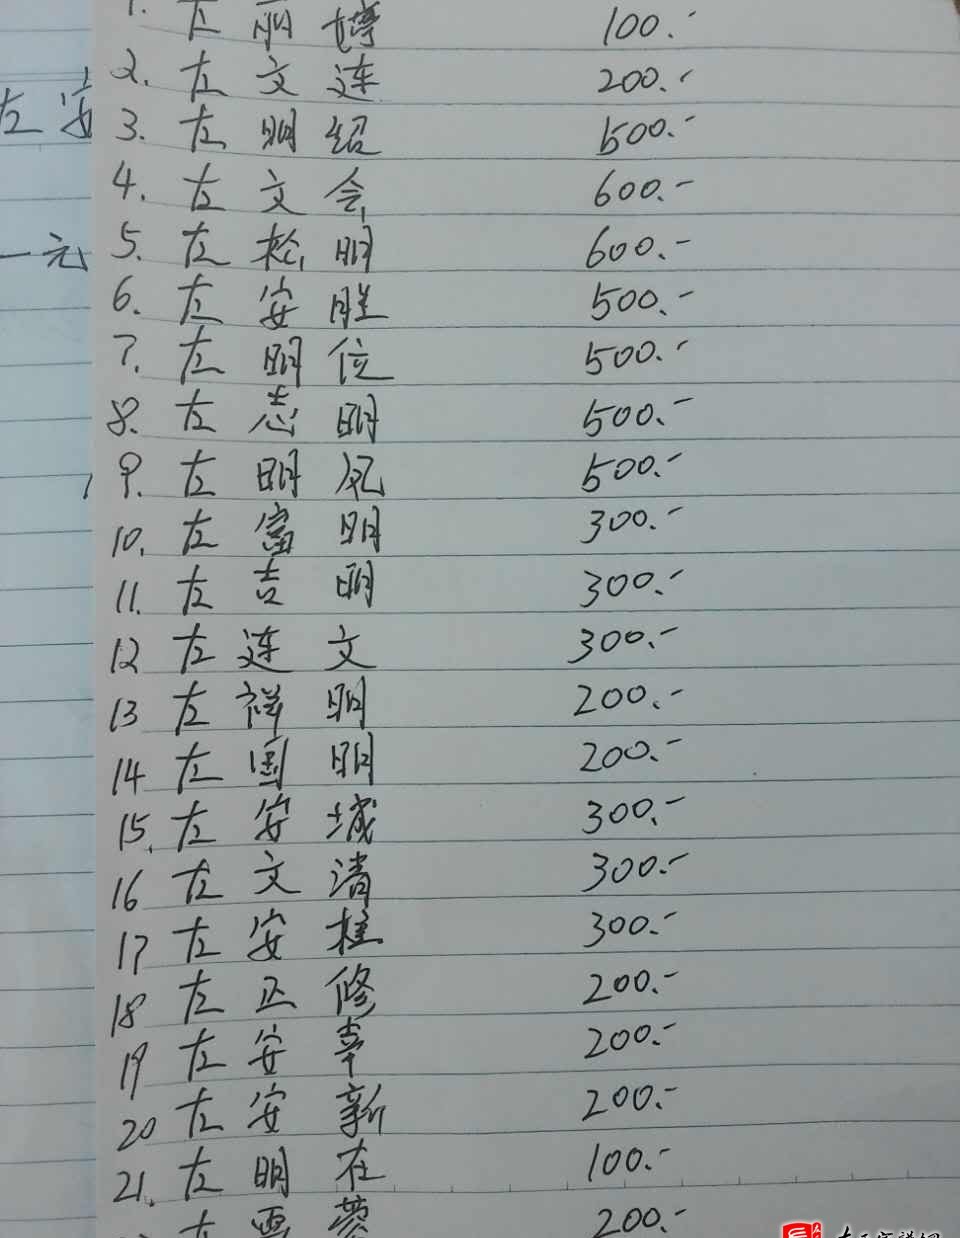 1. 左丽婷 100.-
2. 左文连 200.-
3. 左明绍 500.-
4. 左文会 600.-
5. 左松明 600.-
6. 左安胜 500.-
7. 左明位 500.-
8. 左志明 500.-
9. 左明 500.-
10. 左富明 300.-
11. 左吉明 300.-
12 左连文 300.-
13 左祥明 200.-
14 左国明 200.-
15. 左安城 300.-
16 左文清 300.-
17 左安柱 300.-
18 左正修 200.-
19 左安幸 200.-
20 左安新 200.-
21. 左明在 100.-
左 200.-
左安
一元